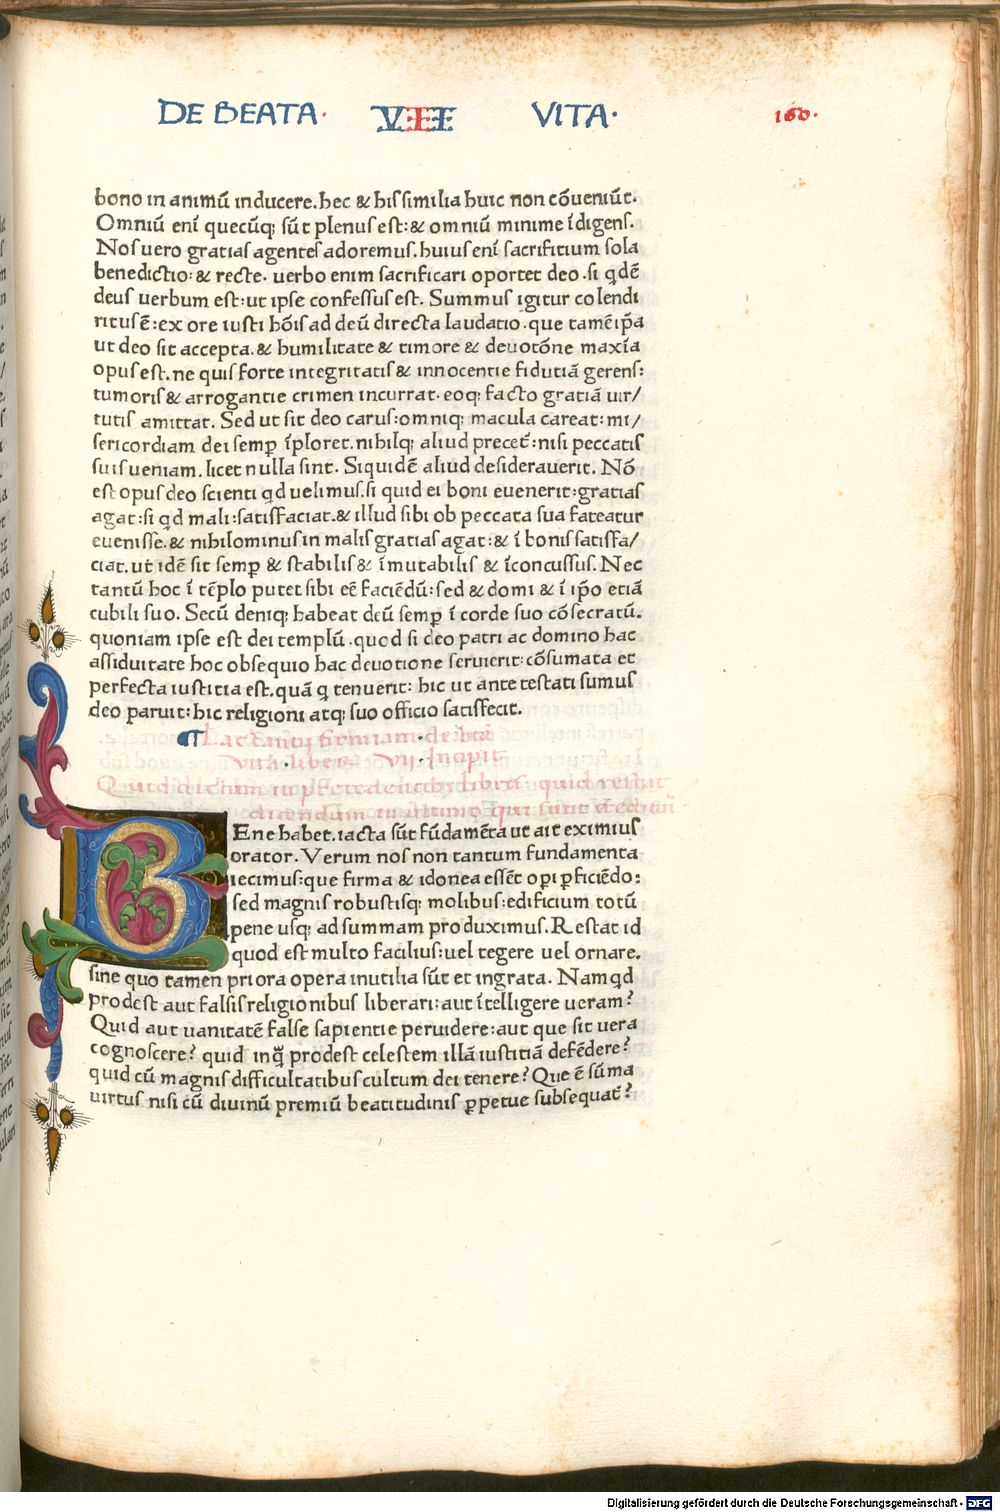 DE BEATA · VII VITA · 160.
bono in animū inducere. hec & his similia huic non cōueniūt.
Omniū eni̅ quecūq; sūt plenus est: & omniū minime i̅digens.
Nos uero gratias agentes adoremus. huius eni̅ sacrificium sola
benedictio: & recte. uerbo enim sacrificari oportet deo. si qdē
deus uerbum est: ut ipse confessus est. Summus igitur colendi
ritus ē: ex ore iusti hōis ad deū directa laudatio. que tamē ip̄a
ut deo sit accepta. & humilitate & timore & deuotōne maxīa
opus est. ne quis forte integritatis & innocentie fidutiā gerens:
tumoris & arrogantie crimen incurrat. eoq; facto gratiā uir/
tutis amittat. Sed ut sit deo carus: omniq; macula careat: mi/
sericordiam dei semp̱ i̅ploret. nihilq; aliud precet̄: nisi peccatis
suis ueniam. licet nulla sint. Siquidē aliud desiderauerit. Nō
est opus deo scienti qd uelimus. si quid ei boni euenerit: gratias
agat: si qd mali: satisfaciat. & illud sibi ob peccata sua fateatur
euenisse. & nihilominus in malis gratias agat: & i̅ bonis satisfa/
ciat. ut idē sit semp̱ & stabilis & i̅mutabilis & i̅concussus. Nec
tantū hoc i̅ tēplo putet sibi eē faciēdū: sed & domi & i̅ ip̄o etiā
cubili suo. Secū deniq; habeat deū semp̱ i̅ corde suo cōsecratū.
quoniam ipse est dei templū. quod si deo patri ac domino hac
assiduitate hoc obsequio hac deuotione seruierit: cōsumata et
perfecta iustitia est. quā q̱ tenuerit: hic ut ante testati sumus
deo paruit: hic religioni atq; suo officio satisfecit.
¶ Lactantij firmiani de bta
vita · liber VIJ · Incipit
Quid dictum in precedentib; libris: quid restat
dicendum in ultimo qui sunt
BEne habet. iacta sūt fūdamēta ut ait eximius
orator. Verum nos non tantum fundamenta
iecimus: que firma & idonea essēt op̱i p̱ficiēdo:
sed magnis robustisq; molibus: edificium totū
pene usq; ad summam produximus. Restat id
quod est multo facilius: uel tegere uel ornare.
sine quo tamen priora opera inutilia sūt et ingrata. Nam qd
prodest aut falsis religionibus liberari: aut i̅telligere ueram?
Quid aut uanitatē false sapientie peruidere: aut que sit uera
cognoscere? quid inq̄ prodest celestem illā iustitiā defēdere?
quid cū magnis difficultatibus cultum dei tenere? Que ē sūma
uirtus nisi cū diuinū premiū beatitudinis p̱petue subsequat̄?
Digitalisierung gefördert durch die Deutsche Forschungsgemeinschaft - DFG